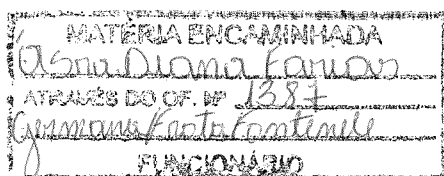 MATÉRIA ENCAMINHADA
Á Sra Diana Farias
ATRAVÉS DO OF. Nº 1387
Germana Frota Fontenele
FUNCIONÁRIO